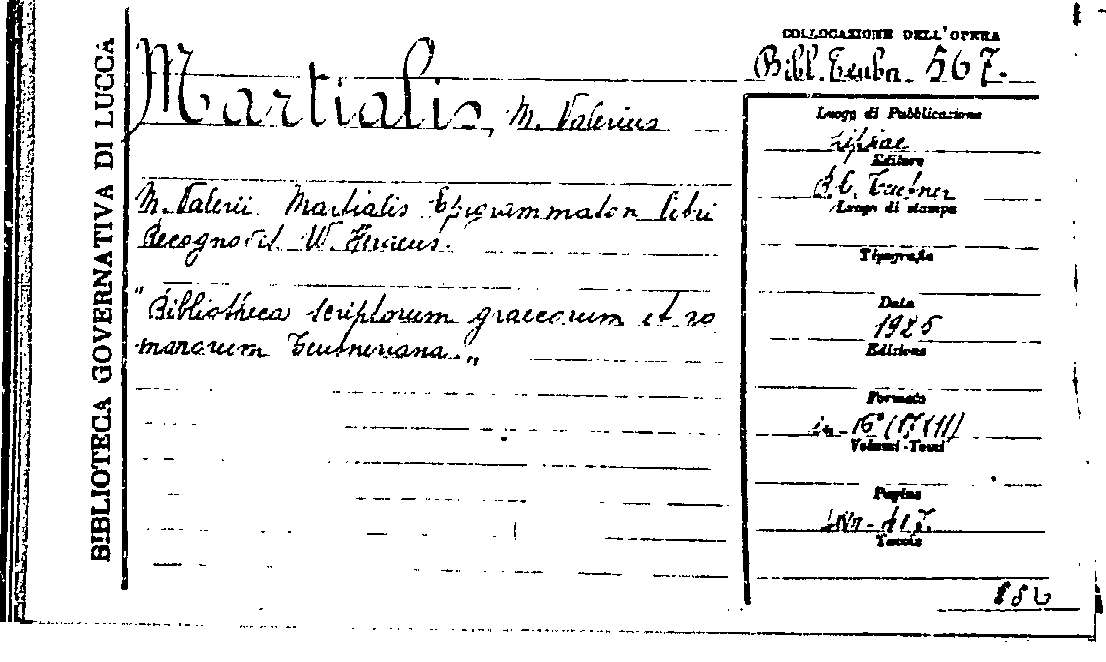 BIBLIOTECA GOVERNATIVA DI LUCCA
COLLOCAZIONE DELL'OPERA
Bibl. Teubn. 567.
Martialis, M. Valerius
M. Valerii Martialis Epigrammaton libri
Recognovit W. Heraeus.
"Bibliotheca scriptorum graecorum et ro
manorum Teubneriana„
Luogo di Pubblicazione
Lipsiae
Editore
B. G. Teubner
Luogo di stampa
Tipografia
Data
1925
Edizione
Formato
in-16°
Volumi-Tomi
Pagine
Tavole